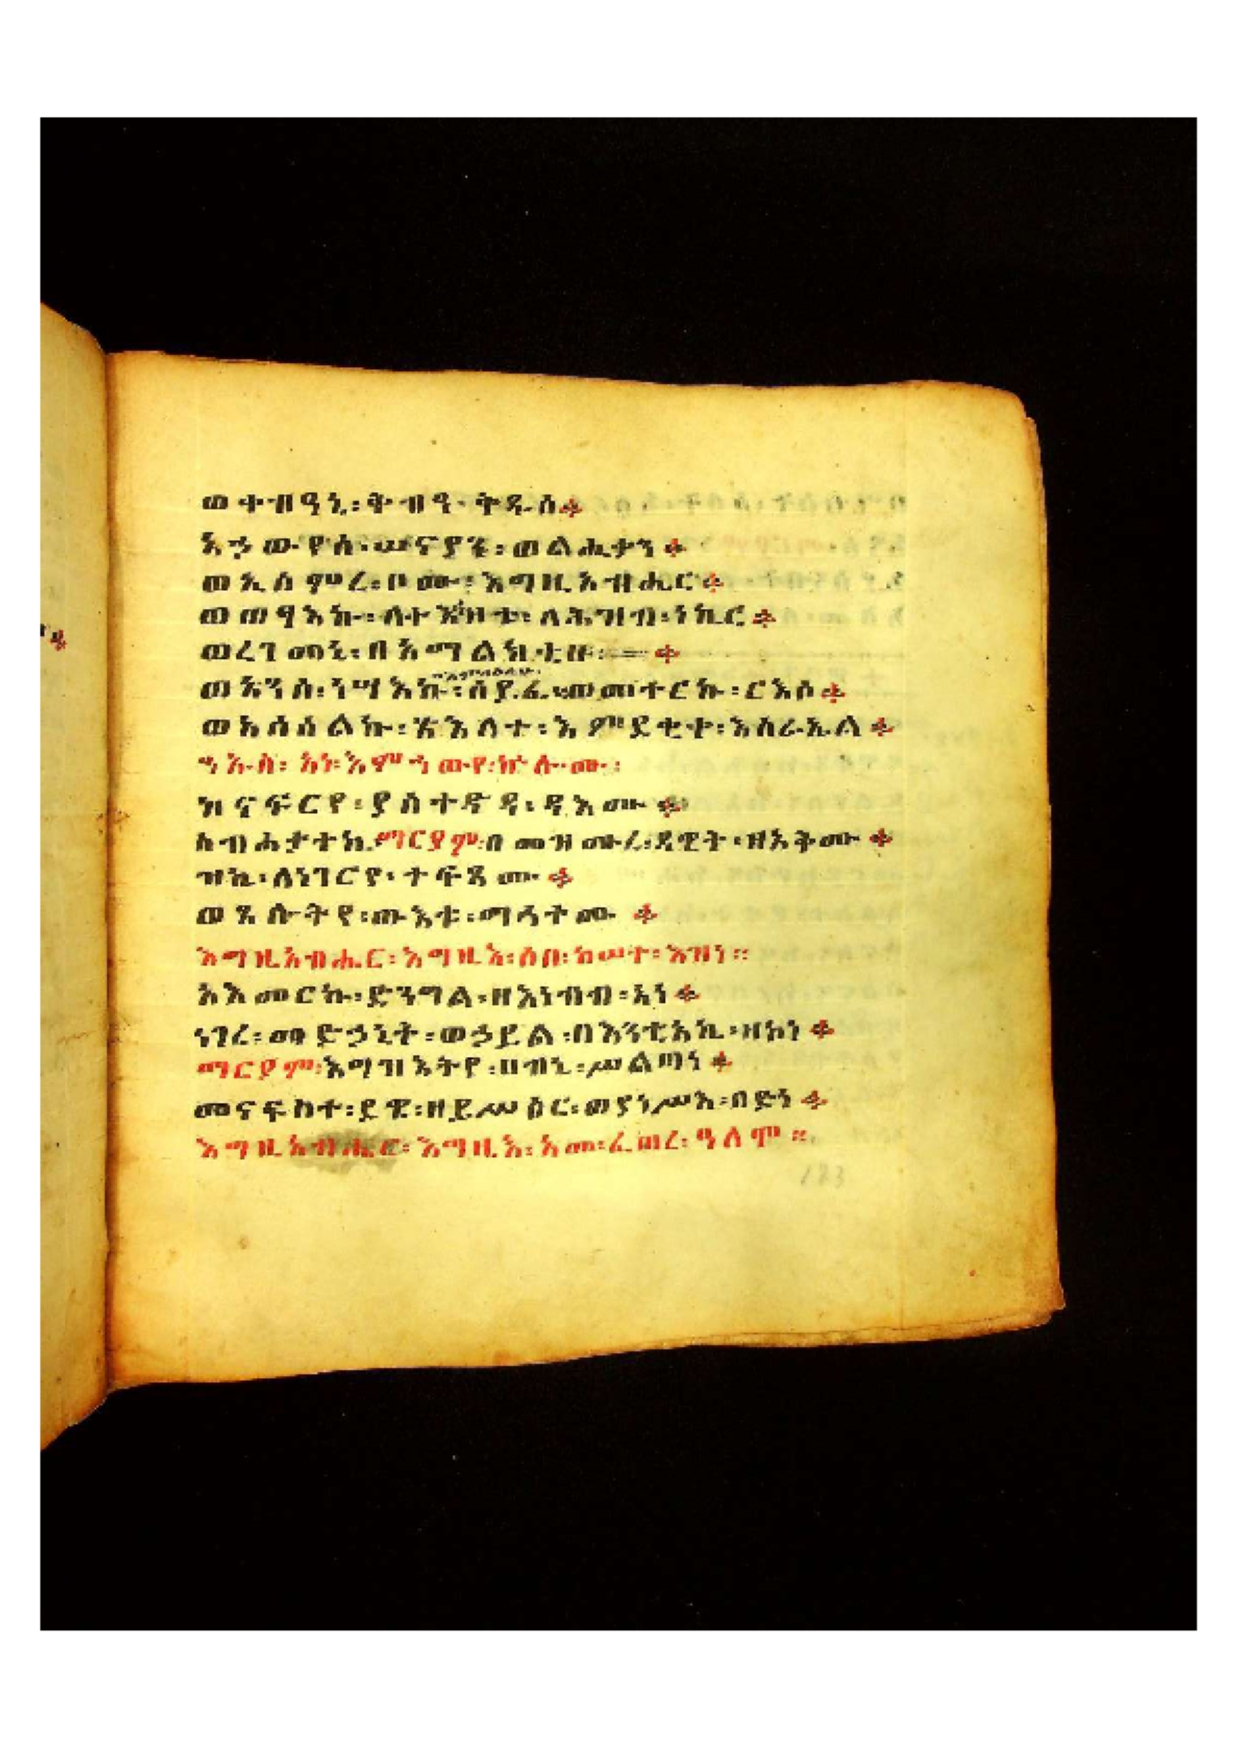 ወቀብዓኒ፡ ቅብዓ፡ ቅዱስ፨
አኃውየሰ፡ ሠናያን፡ ወልሒቃን፨
ወኢሠምረ፡ ቦሙ፡ እግዚአብሔር፨
ወወፃእኩ፡ ለተቀብሎቱ፡ ለሕዝብ፡ ነኪር፨
ወረገመኒ፡ በአማልክቲሁ፨
ወአንሰ፡ ነሣእኩ፡ ሰይፈ፡ ወመተርኩ፡ ርእሰ፨
ወአሰሰልኩ፡ ጽእለተ፡ እምደቂቀ፡ እስራኤል፨
ንኡስ፡ አነ፡ እምኀውየ፡ ኵሎሙ፡
ከናፍርየ፡ ያስተዋድዳ፡ ዳእሙ፨
ለብሓታተኪ ማርያም፡ በመዝሙረ፡ ዳዊት፡ ዘአቅሙ፨
ዝኪ፡ ለነገርየ፡ ተፍጻሙ፨
ወጸሎትየ፡ ውእቱ፡ ማኅተሙ፨
እግዚአብሔር፡ እግዚእ፡ ሶበ፡ ከሠተ፡ እዝነ።
አእመርኩ፡ ድንግል፡ ዘእነብብ፡ አነ፨
ነገረ፡ መድኃኒት፡ ወኃይል፡ በእንቲአኪ፡ ዘኮነ፨
ማርያም፡ እግዝእትየ፡ ሀብኒ፡ ሥልጣነ፨
መናፍስተ፡ ደዌ፡ ዘይሥዕር፡ ወያነሥእ፡ በድነ፨
እግዚአብሔር፡ እግዚእ፡ አመ፡ ፈጠረ፡ ዓለሞ።